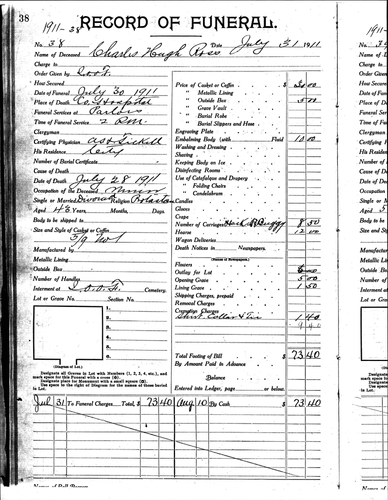 38
1911-38
RECORD OF FUNERAL.
No. 38 Date July 31 1911
Name of Deceased Charles Hugh Ross
Charge to
Order Given by I.O.O.F.
How Secured
Date of Funeral July 30 1911
Place of Death Co. Hospital
Funeral Services at Parlors
Time of Funeral Service 2 P.M.
Clergyman
Certifying Physician
His Residence City
Number of Burial Certificate
Cause of Death
Date of Death July 28 1911
Occupation of the Deceased Miner
Single or Married Divorced Religion Protestant
Aged 48 Years, Months, Days.
Body to be shipped to
Size and Style of Casket or Coffin
5/9 No 1
Manufactured by
Metallic Lining
Outside Box
Number of Handles
Interment at I.O.O.F. Cemetery.
Lot or Grave No. Section No.
1.
2.
3.
4.
5.
6.
(Diagram of Lot.)
Designate all Graves in Lot with Numbers (1, 2, 3, 4, etc.), and
mark space for this Funeral with a cross
Designate place for Monument with a small square
Use space to right of Diagram for the names of those buried
in Lot.
Price of Casket or Coffin $
" Metallic Lining
" Outside Box 5 00
" Grave Vault
" Burial Robe
" Burial Slippers and Hose
Engraving Plate
Embalming Body (with Fluid) 10 00
Washing and Dressing
Shaving
Keeping Body on Ice
Disinfecting Rooms
Use of Catafalque and Drapery
" Folding Chairs
" Candelabrum
Candles
Gloves
Crape
Number of Carriages Hack & Buggy 8 50
Hearse 12 00
Wagon Deliveries
Death Notices in Newspapers.
(Names of Newspapers.)
Flowers
Outlay for Lot
Opening Grave 5 00
Lining Grave 1 50
Shipping Charges, prepaid
Removal Charges
Cremation Charges
Shirt, Collar & Tie 1 40
Total Footing of Bill $ 73 40
By Amount Paid in Advance
Balance
Entered into Ledger, page or below.
Jul 31 To Funeral Charges Total, $ 73 40 Aug 10 By Cash $ 73 40